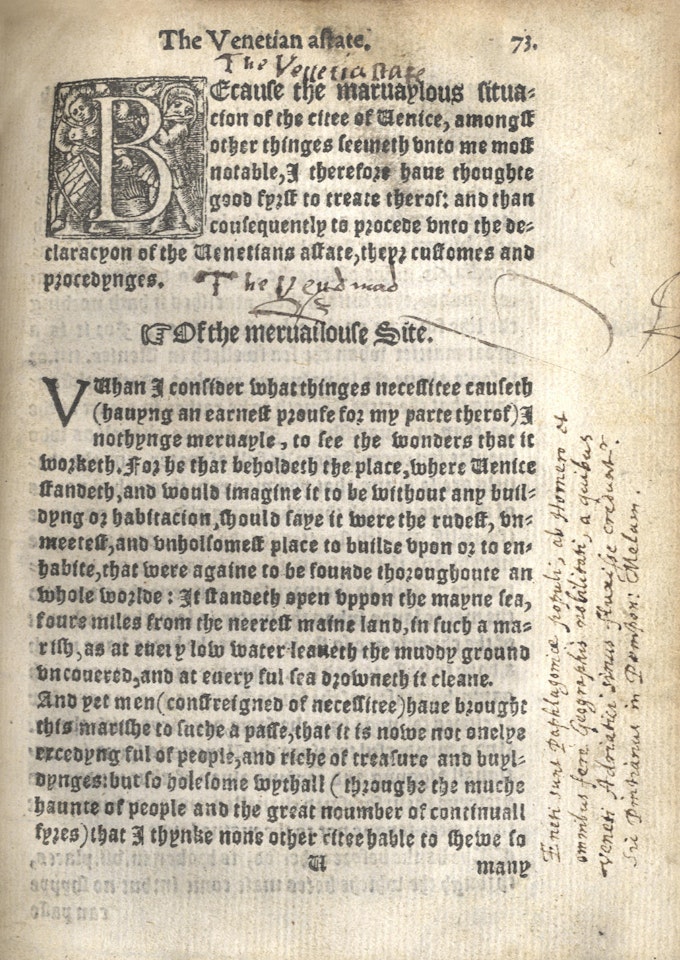 The Venetian astate. 73.
The Venetia state
BEcause the maruaylous situa-
cion of the citee of Uenice, amongst
other thinges seemeth vnto me most
notable, I therefore haue thoughte
good fyrst to treate therof: and than
consequently to procede vnto the de-
claracyon of the Uenetians astate, theyr customes and
procedynges.
The
☞Of the meruailouse Site.
VUhan I consider what thinges necessitee causeth
(hauyng an earnest proufe for my parte therof) I
nothynge meruayle, to see the wonders that it
worketh. For he that beholdeth the place, where Uenice
standeth, and would imagine it to be without any buil-
dyng or habitacion, should saye it were the rudest, vn-
meetest, and vnholsomest place to builde vpon or to en-
habite, that were againe to be founde thoroughoute an
whole worlde: It standeth open vppon the mayne sea,
foure miles from the neerest maine land, in such a ma-
rish, as at euery low water leaueth the muddy ground
vncouered, and at euery ful sea drowneth it cleane.
And yet men (constreigned of necessitee) haue brought
this marishe to suche a passe, that it is nowe not onelye
excedyng ful of people, and riche of treasure and buyl-
dynges: but so holesome wythall (throughe the muche
haunte of people and the great noumber of continuall
fyres) that I thynke none other citee hable to shewe so
U many
Eneti sunt Paphlagoniæ populi, ab Homero et
omnibus fere Geographis nobilitati, a quibus
Veneti Adriatici sinus fluxisse credunt.
Sic Pintianus in Pompon: Melam.